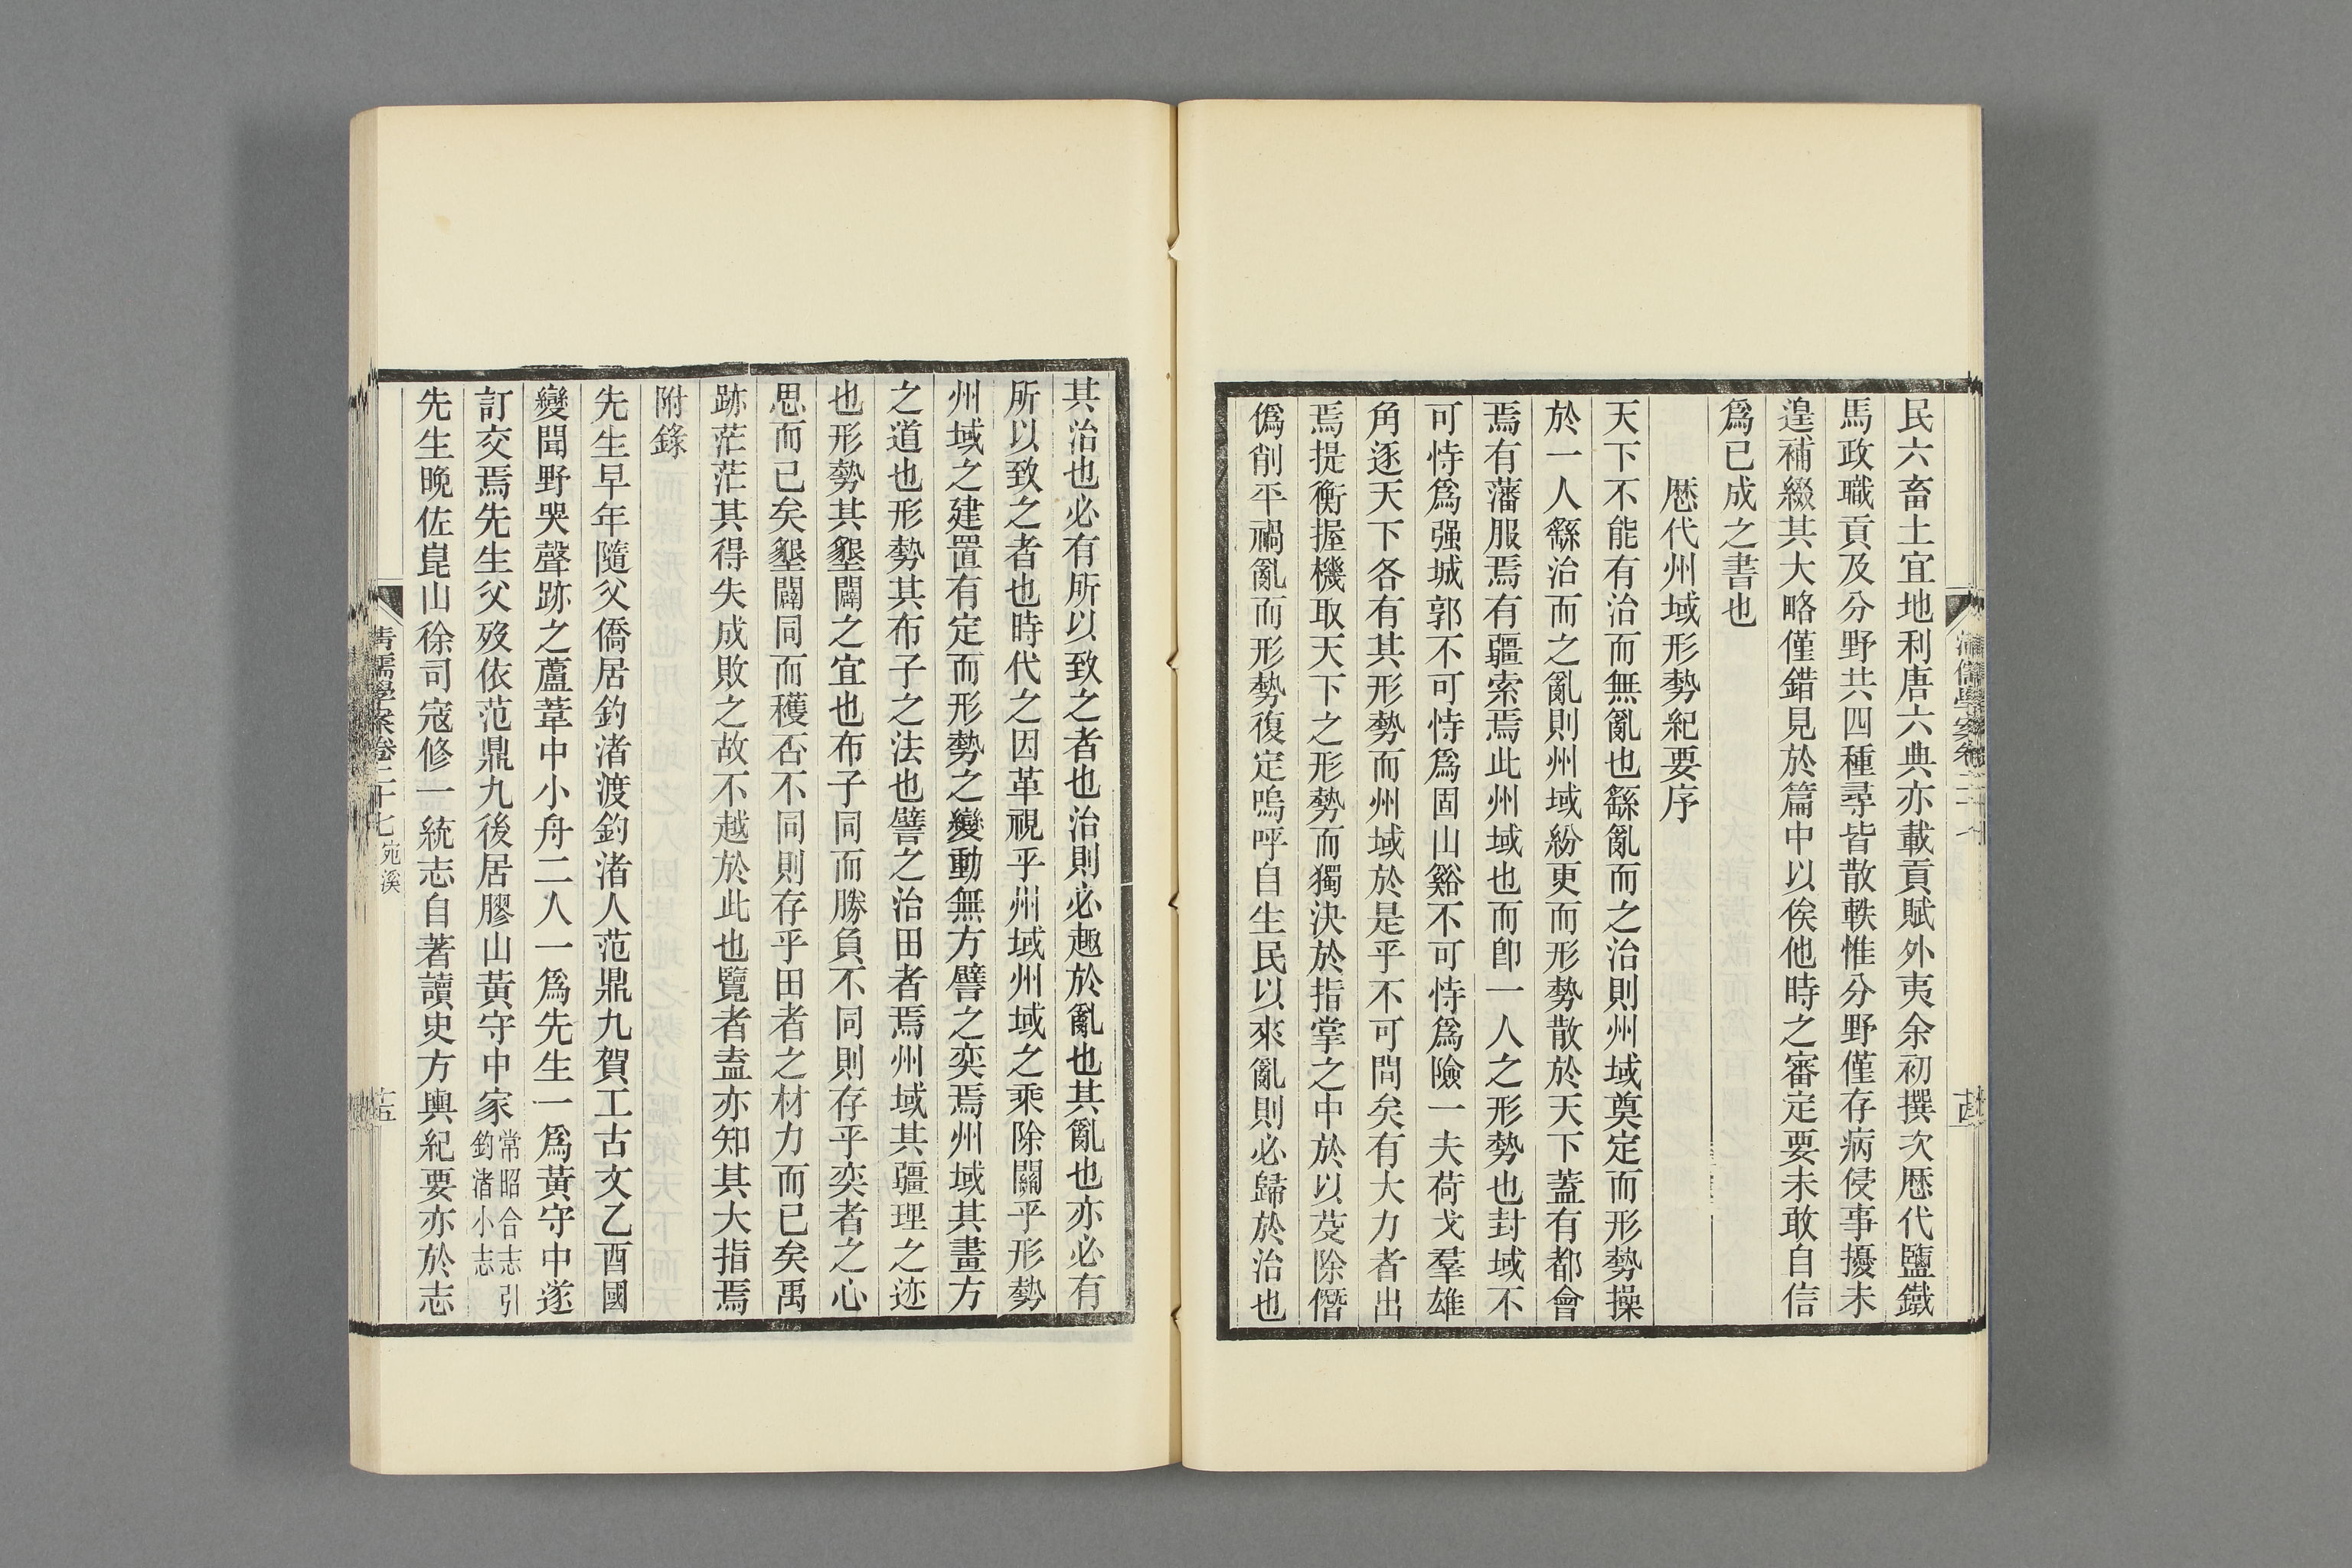 民六畜土宜地利唐六典亦載貢賦外夷余初撰次厯代鹽鐵
馬政職貢及分野共四種尋皆散軼惟分野僅存病侵事擾未
遑補綴其大略僅錯見於篇中以俟他時之審定要未敢自信
爲已成之書也
厯代州域形勢紀要序
天下不能有治而無亂也繇亂而之治則州域奠定而形勢操
於一人繇治而之亂則州域紛更而形勢散於天下蓋有都會
焉有藩服焉有疆索焉此州域也而卽一人之形勢也封域不
可恃爲强城郭不可恃爲固山谿不可恃爲險一夫荷戈羣雄
角逐天下各有其形勢而州域於是乎不可問矣有大力者出
焉提衡握機取天下之形勢而獨決於指掌之中於以芟除僭
僞削平禍亂而形勢復定嗚呼自生民以來亂則必歸於治也
其治也必有所以致之者也治則必趣於亂也其亂也亦必有
所以致之者也時代之因革視乎州域州域之乘除關乎形勢
州域之建置有定而形勢之變動無方譬之奕焉州域其畫方
之道也形勢其布子之法也譬之治田者焉州域其疆理之迹
也形勢其墾闢之宜也布子同而勝負不同則存乎奕者之心
思而已矣墾闢同而穫否不同則存乎田者之材力而已矣禹
跡茫茫其得失成敗之故不越於此也覽者盍亦知其大指焉
附錄
先生早年隨父僑居釣渚渡釣渚人范鼎九賀工古文乙酉國
變聞野哭聲跡之蘆葦中小舟二人一爲先生一爲黃守中遂
訂交焉先生父歿依范鼎九後居膠山黃守中家常昭合志引
釣渚小志
先生晚佐崑山徐司寇修一統志自著讀史方輿紀要亦於志
清儒學案卷二十七 宛溪
十五